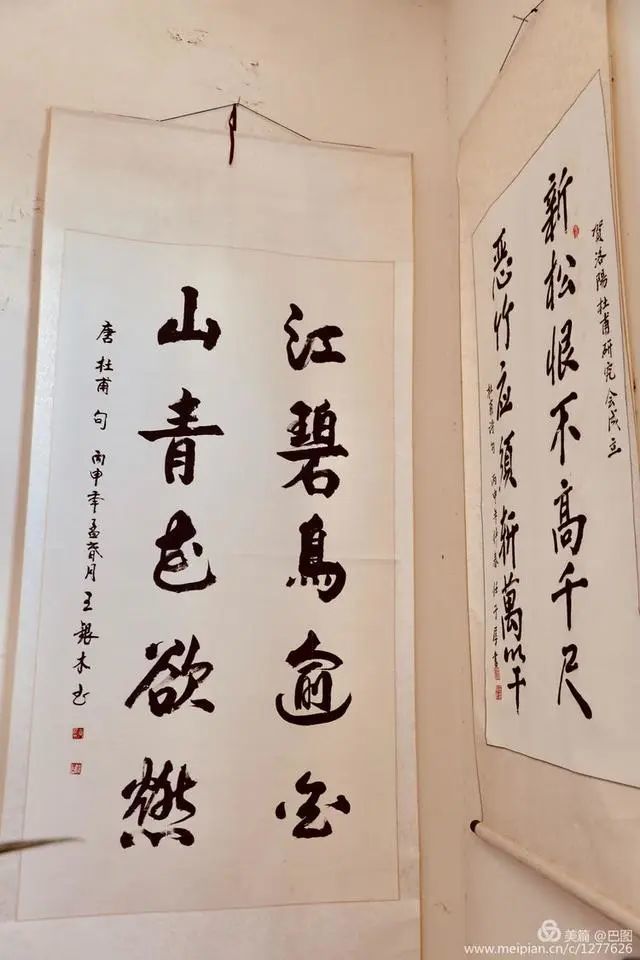 江碧鳥逾白
山青花欲燃
唐杜甫句 丙申年孟春月 王銀木书
贺洛陽杜甫研究会成立
新松恨不高千尺
恶竹应須斬萬竿
杜甫诗句 丙申年仲春
美篇 @巴图
www.meipian.cn/c/1277626